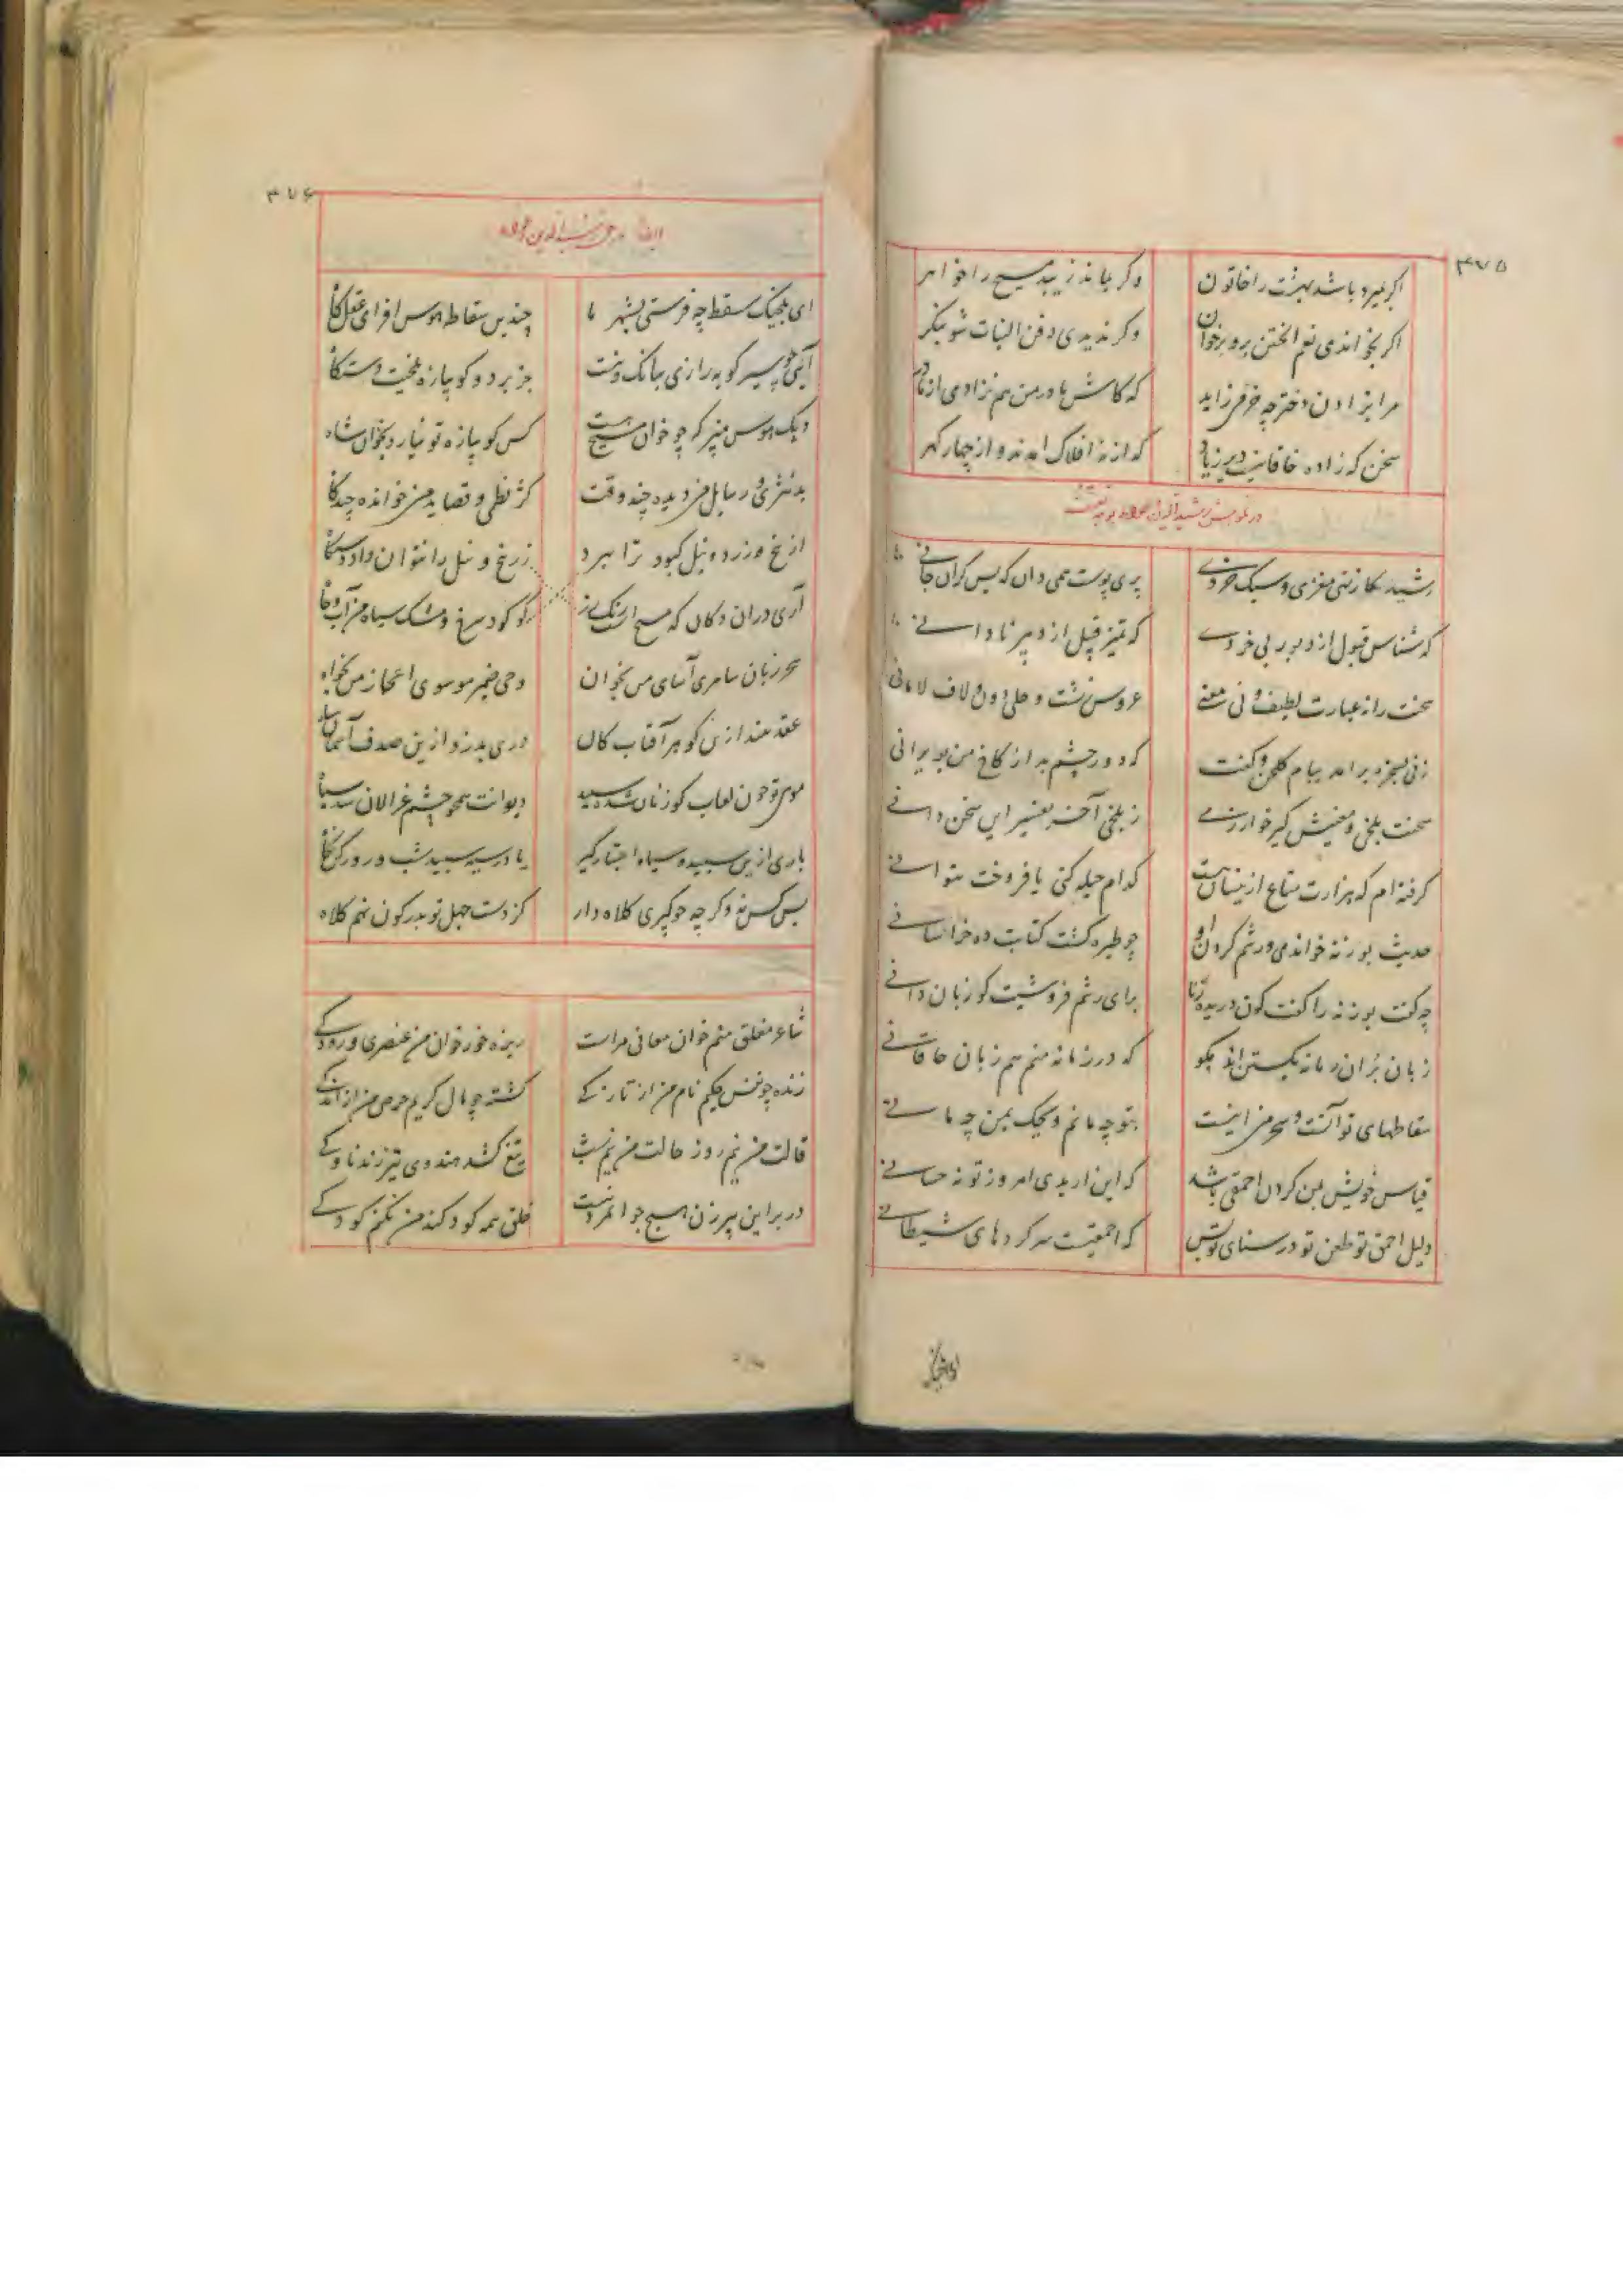 ۳۷۵
اگر بمیرد باشد بهشت را خاتون
وگر بماند زیبد مسیح را خواهر
اگر نخواندی نعم الختن برو برخوان
وگر ندیدی دفن البنات شو بنگر
مرا بزادن دختر چه خرمی زاید
که کاش مادر من هم نزادی از مادر
سخن که زاده خاقانیست دیر زیاد
که از نه افلاک آمدند و از چار گهر
رشیدکا ز تهی مغزی و سبک خردی
پری پوست همی دان که بس گران جانی
که شناس قبول از دبور بی خردی
که تمیز قبل از دبر نادانی
سخنت را نه عبارت لطیف و نی معنی
عروس زشت و حلی دون و لاف لامانی
زنی بسخره برآمد ببام گلخن و گفت
که دور چشم بد از کاخ من بویرانی
سخنت بلخی و معنیش گیر خوارزمی
ز بلخی آخر تفسیر این سخن دانی
گرفته ام که هزارت متاع ازینسان هست
کدام حیله کنی یا فروخت بتوانی
حدیث بوزنه خواندی و رشم کردن او
چو طیره گشت کتابت ده خراسانی
چه گفت بوزنه را گفت کون دریده زنا
برای رشم فروشیت کو زبان دانی
زبان بران زمانه بکشتن اند مگو
که در زمانه منم هم زبان خاقانی
سقاطهای تو آنست و سحر من اینست
بتو چه مانم ویحک بمن چه مانی
قیاس خویش بمن کردن احمقی باشد
که این اربدی امروز تو نه حسانی
دلیل احمقی تو طعن تو در سنای تو بس
که احمقیست سر کردهای شیطانی
۳۷۶
ای بلخیک سقط چه فرستی بشهر ما
چندین سقاطه هوس افزای عقل کاه
آئی چو سیر کوبه رازی ببانگ و نیست
جز بر دو گوپیازه بلخیت دستگاه
دیگ هوس مپز که چو خوان مسیح هست
کس گوپیازه تو نیارد بخوان شاه
بد نثری و رسایل من دیده چند وقت
کژ نظمی و قصاید من خوانده چندگاه
زرنیخ و نیل را نتوان داد دستگاه
آری در آن دکان که مسیح است رنگرز
سحر زبان سامری آسای من بخوان
وحی ضمیر موسوی اعجاز من بخواه
عقد مبند ازین گوهر آفتاب کان
دری بدزد ازین صدف آسمان شناه
موی تو چون لعاب گوزنان شده سپید
دیوانت همچو چشم غزالان شده سیاه
باری ازین سپید و سیاه اعتبار گیر
یا در سیه سپید شب و روز کن نگاه
بس کس نه و گر چه جو گیری کلاه دار
کز دست جهل تو بدر کون نهم کلاه
شاعر مفلق منم خوان معانی مراست
ریزه خور خوان من عنصری و رودکی
زنده چو نفس حکیم نام من از تازگی
کشته چو مال کریم حرص من از اندکی
قالت من نیم روز حالت من نیم شب
تیغ کشد هندوی تیر زند ناوکی
در بر این پیرزن هیچ جوانمرد نیست
خلق همه کودکند من نکنم کودکی